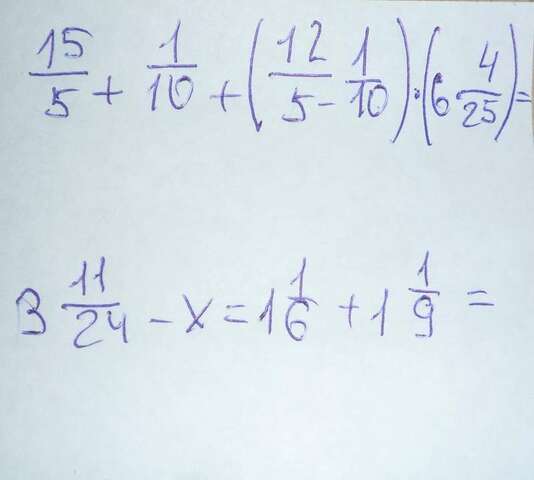 15/5 + 1/10 + (12/5 - 1/10) · (6 4/25) =
3 11/24 - x = 1 1/6 + 1 1/9 =